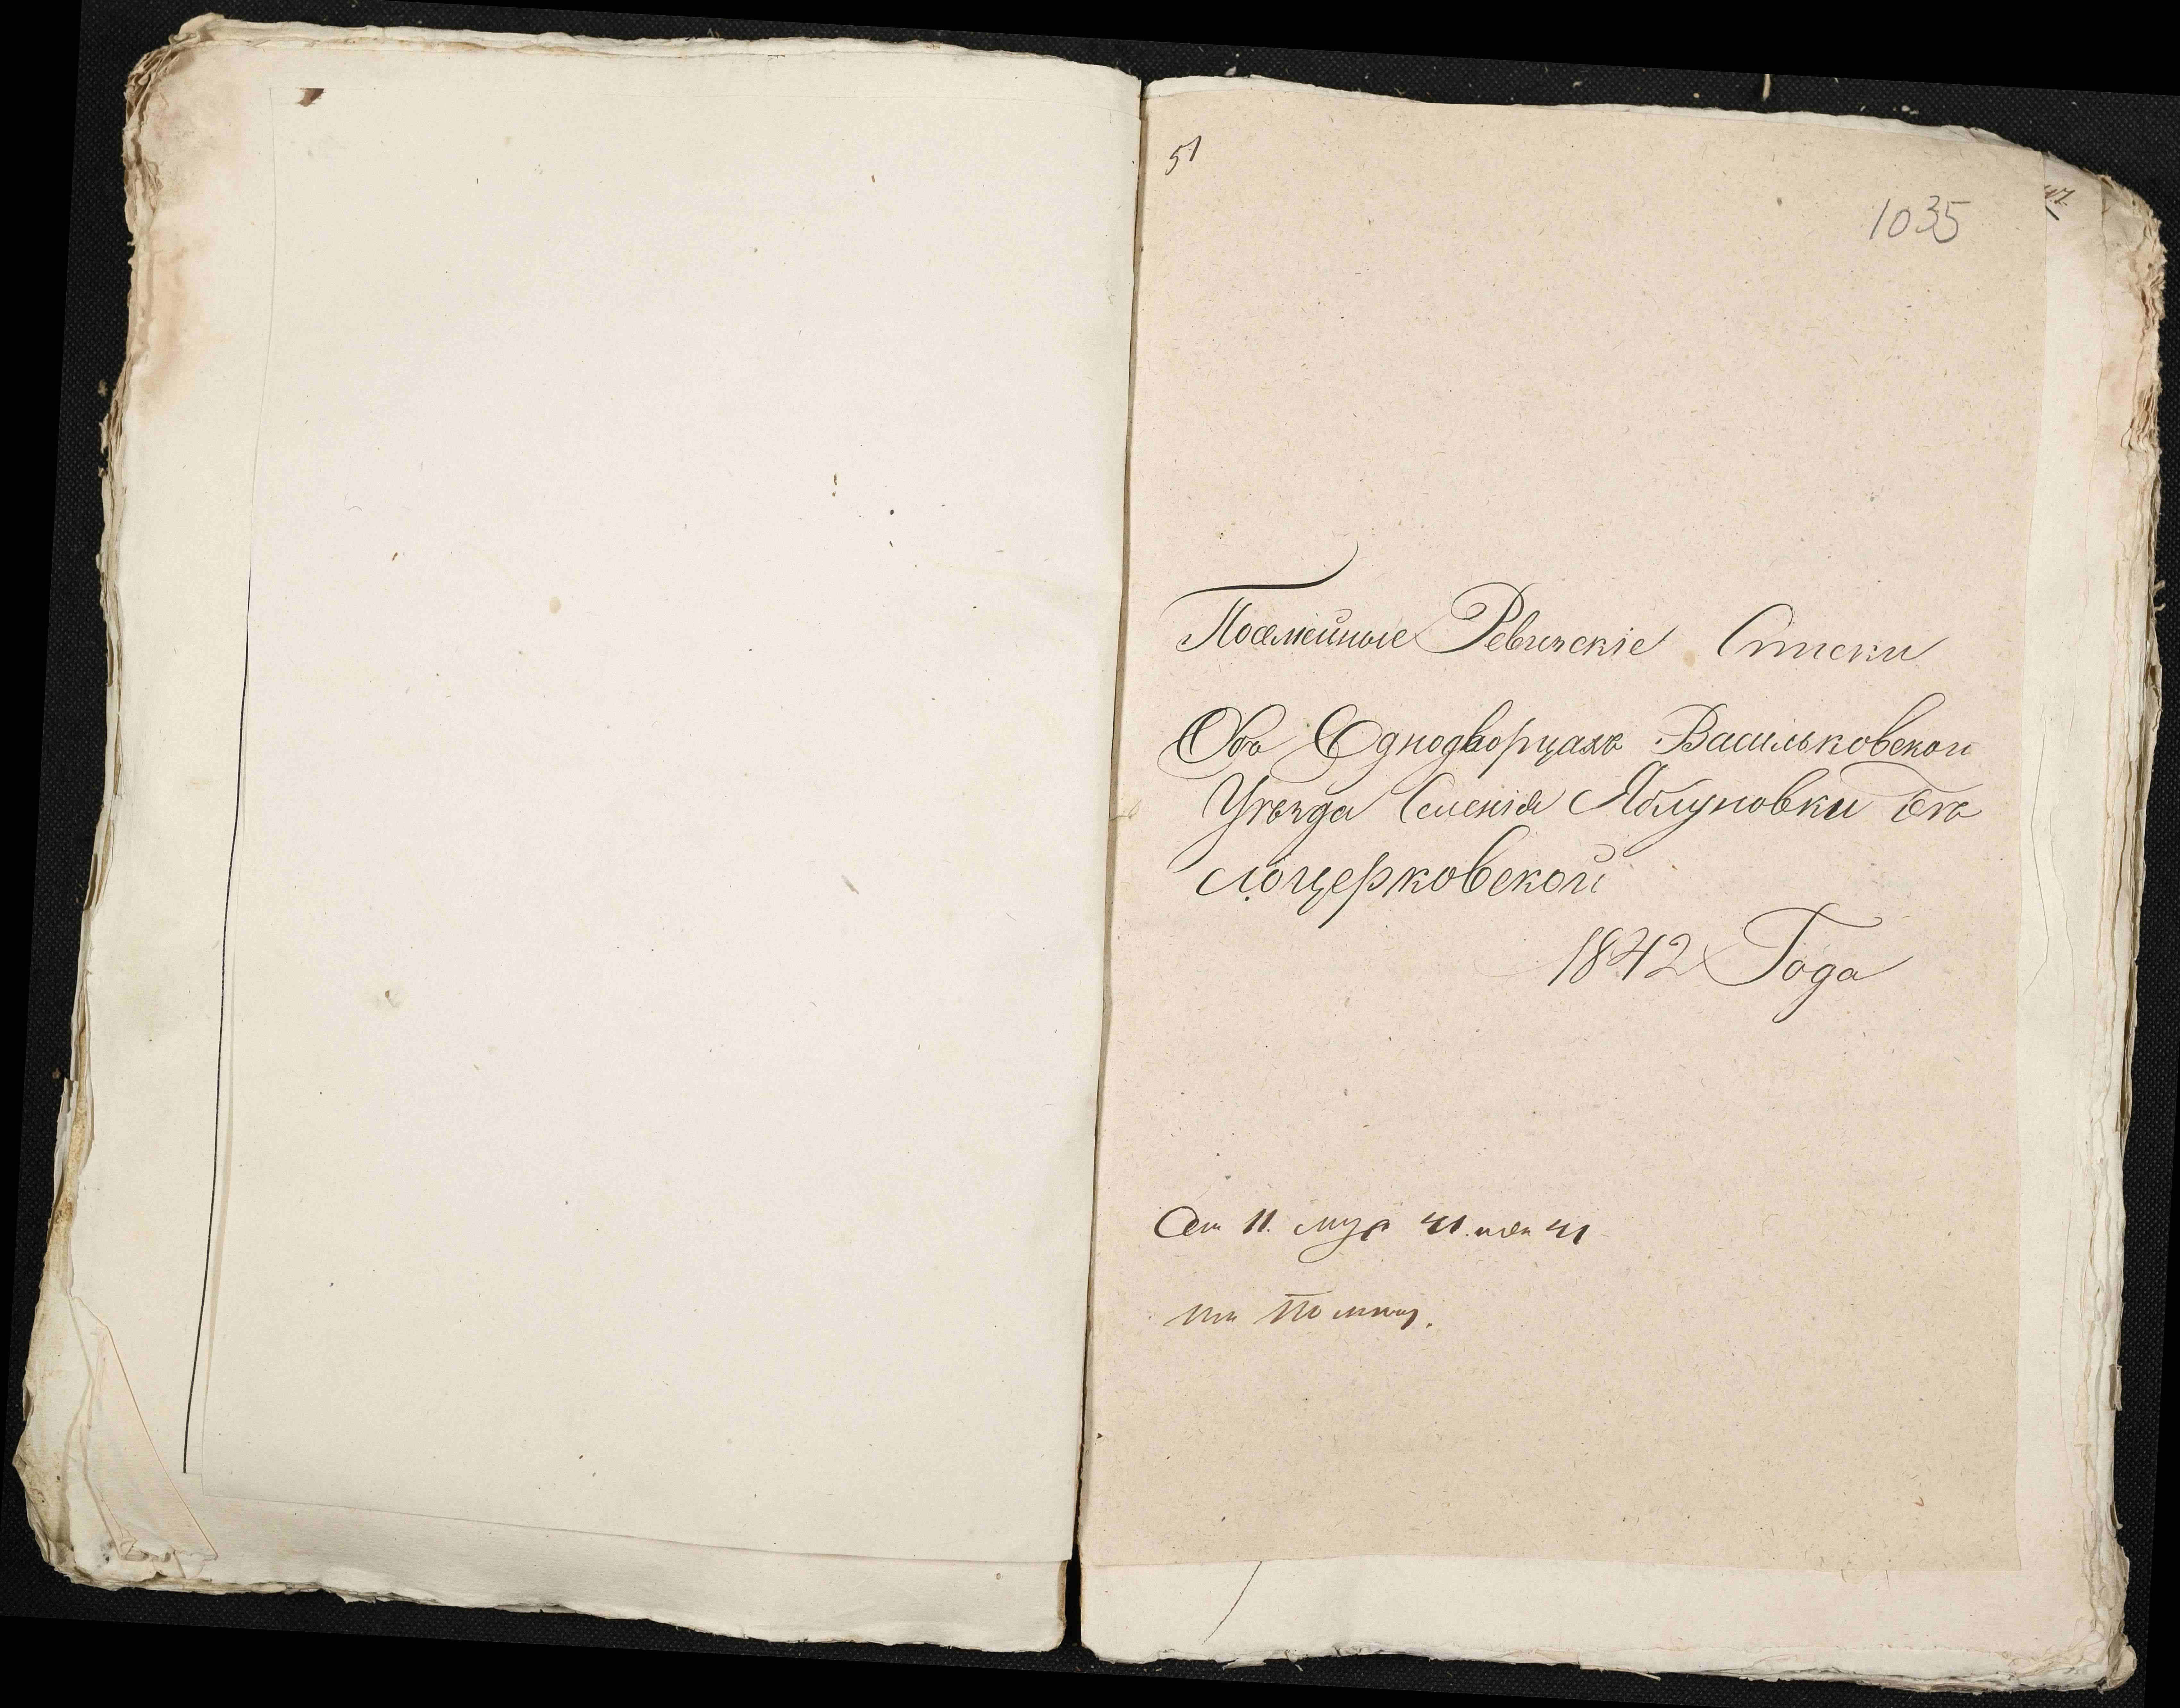 51
1035
Посемейные Ревизскіе Списки
Объ Однодворцахъ Васильковскои
Уѣзда Селенія Яблуновки Бѣ
лоцерковской
1842 Года
Сем 11. муж 41. жен 41